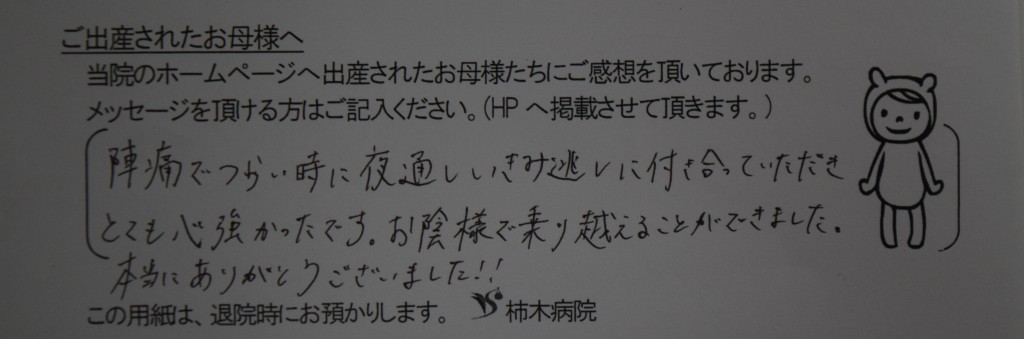 ご出産されたお母様へ
当院のホームページへ出産されたお母様たちにご感想を頂いております。
メッセージを頂ける方はご記入ください。(HPへ掲載させて頂きます。)
陣痛でつらい時に夜通しいきみ逃しに付き合っていただき
とても心強かったです。お陰様で乗り越えることができました。
本当にありがとうございました!!
この用紙は、退院時にお預かりします。 柿木病院